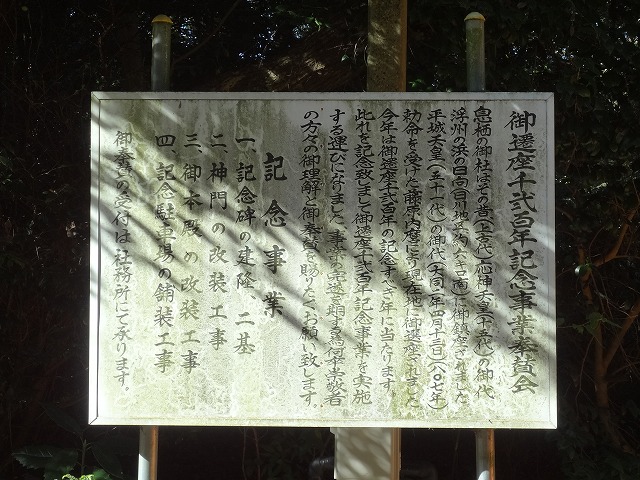 御遷座千弐百年記念事業奉賛会
亀栖の御社はその昔(上古代)応神天皇(十五代)の御代
浮州の浜の日向日川地に約六百間に御鎮座されました
平城天皇(五十一代)の御代(大同二年四月十三日)(八〇七年)
勅命を受けた藤原内麿により現在地に御遷座されました
今年は御遷座千弐百年の記念すべき年に当たります
此れを記念致しまして御遷座千弐百年記念事業を実施
する運びになりました。事業の完遂を期する為何卒崇敬者
の方々の御理解と御奉賛を賜りたくお願い致します。
記念事業
一、記念碑の建隆、二基
二、神門の改装工事
三、御本殿の改装工事
四、記念駐車場の舗装工事
御奉賛の受付は社務所にて承ります。